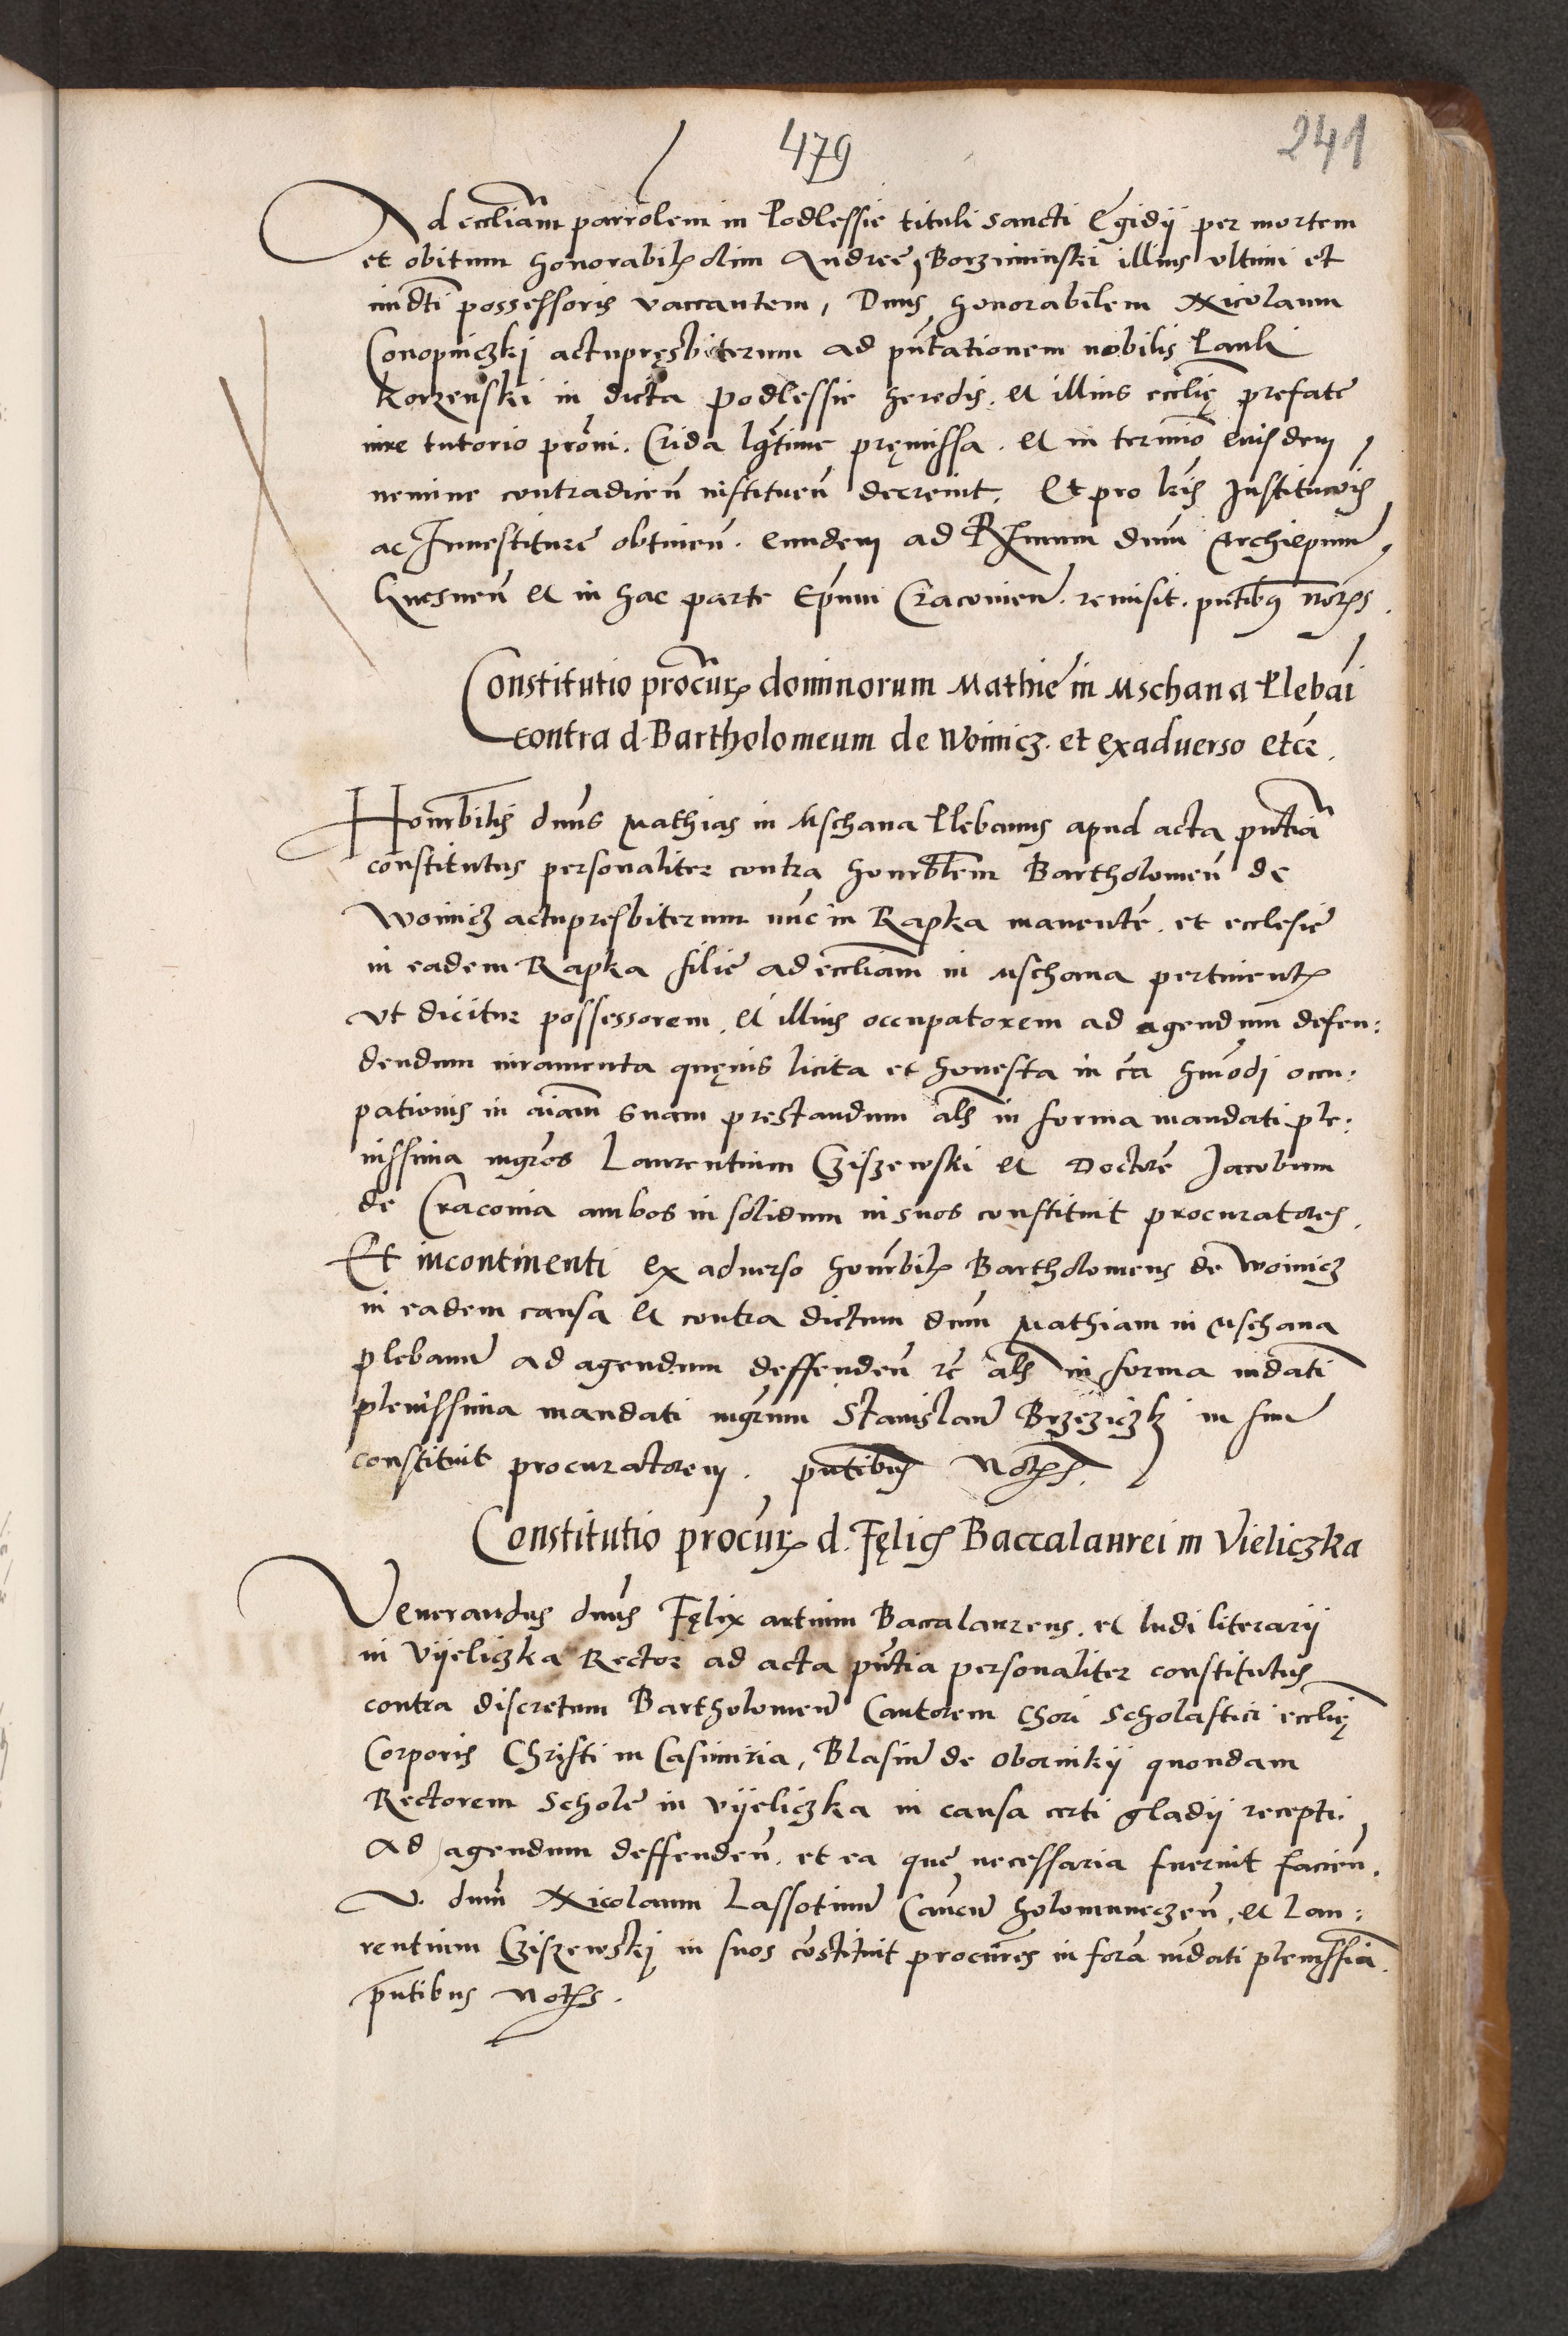 479
241
Ad eccliam parrolem in Podlessie tituli sancti Egidij per mortem
et obitum honorabil olim Andree Borziminski illius ultimi et
imdti possessoris vaccantem, Dnus honorabilem Nicolaum
Conopniczkj actupręsbiterum ad pntationem nobilis Pauli
Korzenski in dicta Podlessie heredis. et illius ecclię prefate
iure tutorio proni. Crida lgtime pręmissa. et in termio eiusdem
nemine contradicen instituen decreuit, Et pro lris Institucois
ac Inuestiture obtinen. eundem ad Rssmum dnum Archiepum
Gnesnen et in hac parte Epum Cracouien. remisit. pntibus nors.
Constitutio procur dominorum Mathie in Mschana Plebai
contra d. Bartholomeum de Woinicz. et exaduerso etc.
Honrbilis dnus Mathias in Mschana Plebanus apud acta pntia
constitutus personaliter contra honrblem Bartholomeu de
Woinicz actupresbiterum nuc in Rapka manente. et ecclesie
in eadem Rapka filie ad eccliam in Mschana pertinent
vt dicitur possessorem, et illius occupatorem ad agendum defen:
dendum iuramenta quęuis licita et honesta in ca hmodj occu:
pationis in aiam suam prestandum als in forma mandati ple:
nissima mgros Laurentium Cziszewski et Doctore Jacobum
de Cracouia ambos in solidum in suos constituit procuratores.
Et incontinenti ex aduerso honrbil Bartholomeus de Woinicz
in eadem causa et contra dictum dnum Mathiam in Mschana
plebanu ad agendum deffenden etc als in forma mdati
plenissima mandati mgrum Stanislau Brzeziczk in suu
constituit procuratorem. pntibus Notrs.
Constitutio procur d. Fęlicis Baccalaurei in Vieliczka
Venerandus dnus Fęlix artium Baccalaureus. et ludi literarij
in Vijeliczka Rector ad acta pntia personaliter constitutus
contra discretum Bartholomeu Cantorem Chori Scholastici ecclię
Corporis Christi in Casimiria, Blasiu de Obornikij quondam
Rectorem Schole in Vijeliczka in causa certi gladij recepti.
Ad agendum deffenden. et ea que necessaria fuerint facien.
V. dnum Nicolaum Lassotinu Canocu holomuneczen, et Lau:
rentium Cziszewskj in suos costituit procures in fora mdati plenissia.
pntibus Notrs.